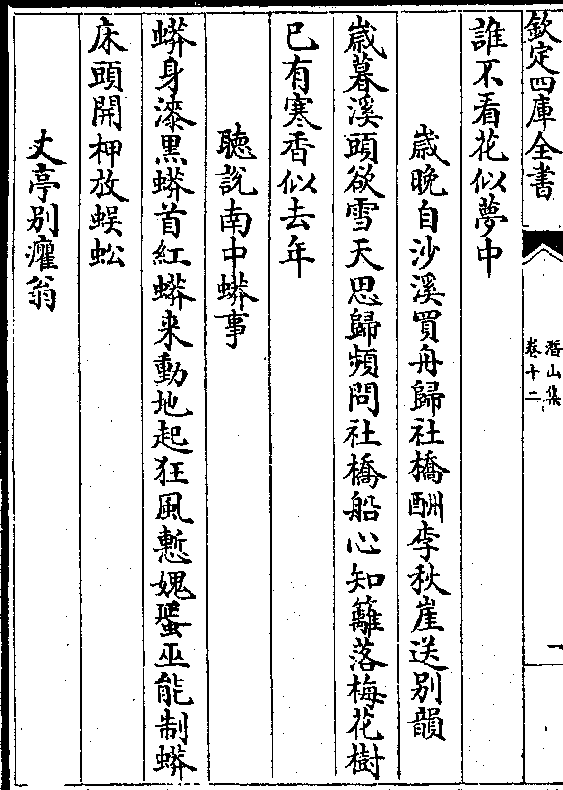 欽定四庫全書
潛山集
卷十二
誰不看花似夢中
歲晚自沙溪買舟歸社橋酬李秋崖送别韻
歲暮溪頭欲雪天思歸頻問社橋船心知籬落梅花樹
已有寒香似去年
聽説南中蟒事
蟒身漆黒蟒首紅蟒来動地起狂風慙媿蜑巫能制蟒
床頭開柙放蜈蚣
丈亭别癯翁